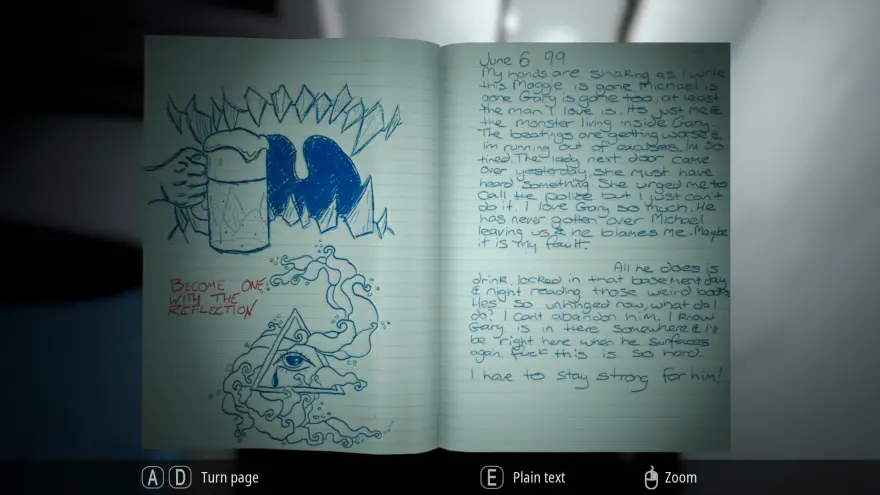 BECOME ONE
WITH THE
REFLECTION
June 6 99
My hands are shaking as I write
this Maggie is gone Michael is
gone Gary is gone too, at least
the man I love is. It's just me &
the monster living inside Gary.
The beatings are getting worse &
I'm running out of excuses. I'm so
tired. The lady next door came
over yesterday, she must have
heard something. She urged me to
call the police but I just can't
do it. I love Gary so much. He
has never gotten over Michael
leaving us & he blames me. Maybe
it is my fault.
All he does is
drink, locked in that basement day
& night reading those weird books
He's so unhinged now, what do I
do? I can't abandon him. I know
Gary is in there somewhere & I'll
be right here when he surfaces
again. Fuck this is so hard.
I have to stay strong for him!
A D Turn page
E Plain text
Zoom